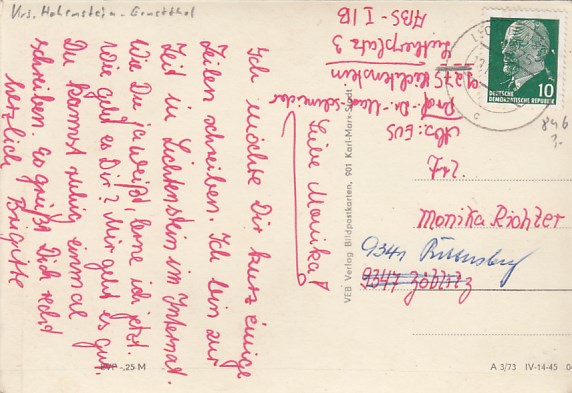 Krs. Hohenstein-Ernstthal
Liebe Monika!
Ich möchte Dir kurz einige
Zeilen schreiben. Ich bin zur
Zeit in Lichtenstein im Internat.
Wie Du ja weißt, lerne ich jetzt.
Wie geht es Dir? Mir geht es gut.
Du kannst ruhig einmal
schreiben. Es grüßt Dich recht
herzlich
Brigitte
EVP -,25 M
VEB Verlag Bildpostkarten, 901 Karl-Marx-Stadt
Abs: EOS
Prof.-Dr.-Max-Schneider
9127 Lichtenstein
Lutherplatz 3
ABS-I/B
10
DEUTSCHE
DEMOKRATISCHE REPUBLIK
846
Monika Richter
9341 
9347 Zöblitz
A 3/73 IV-14-45 04